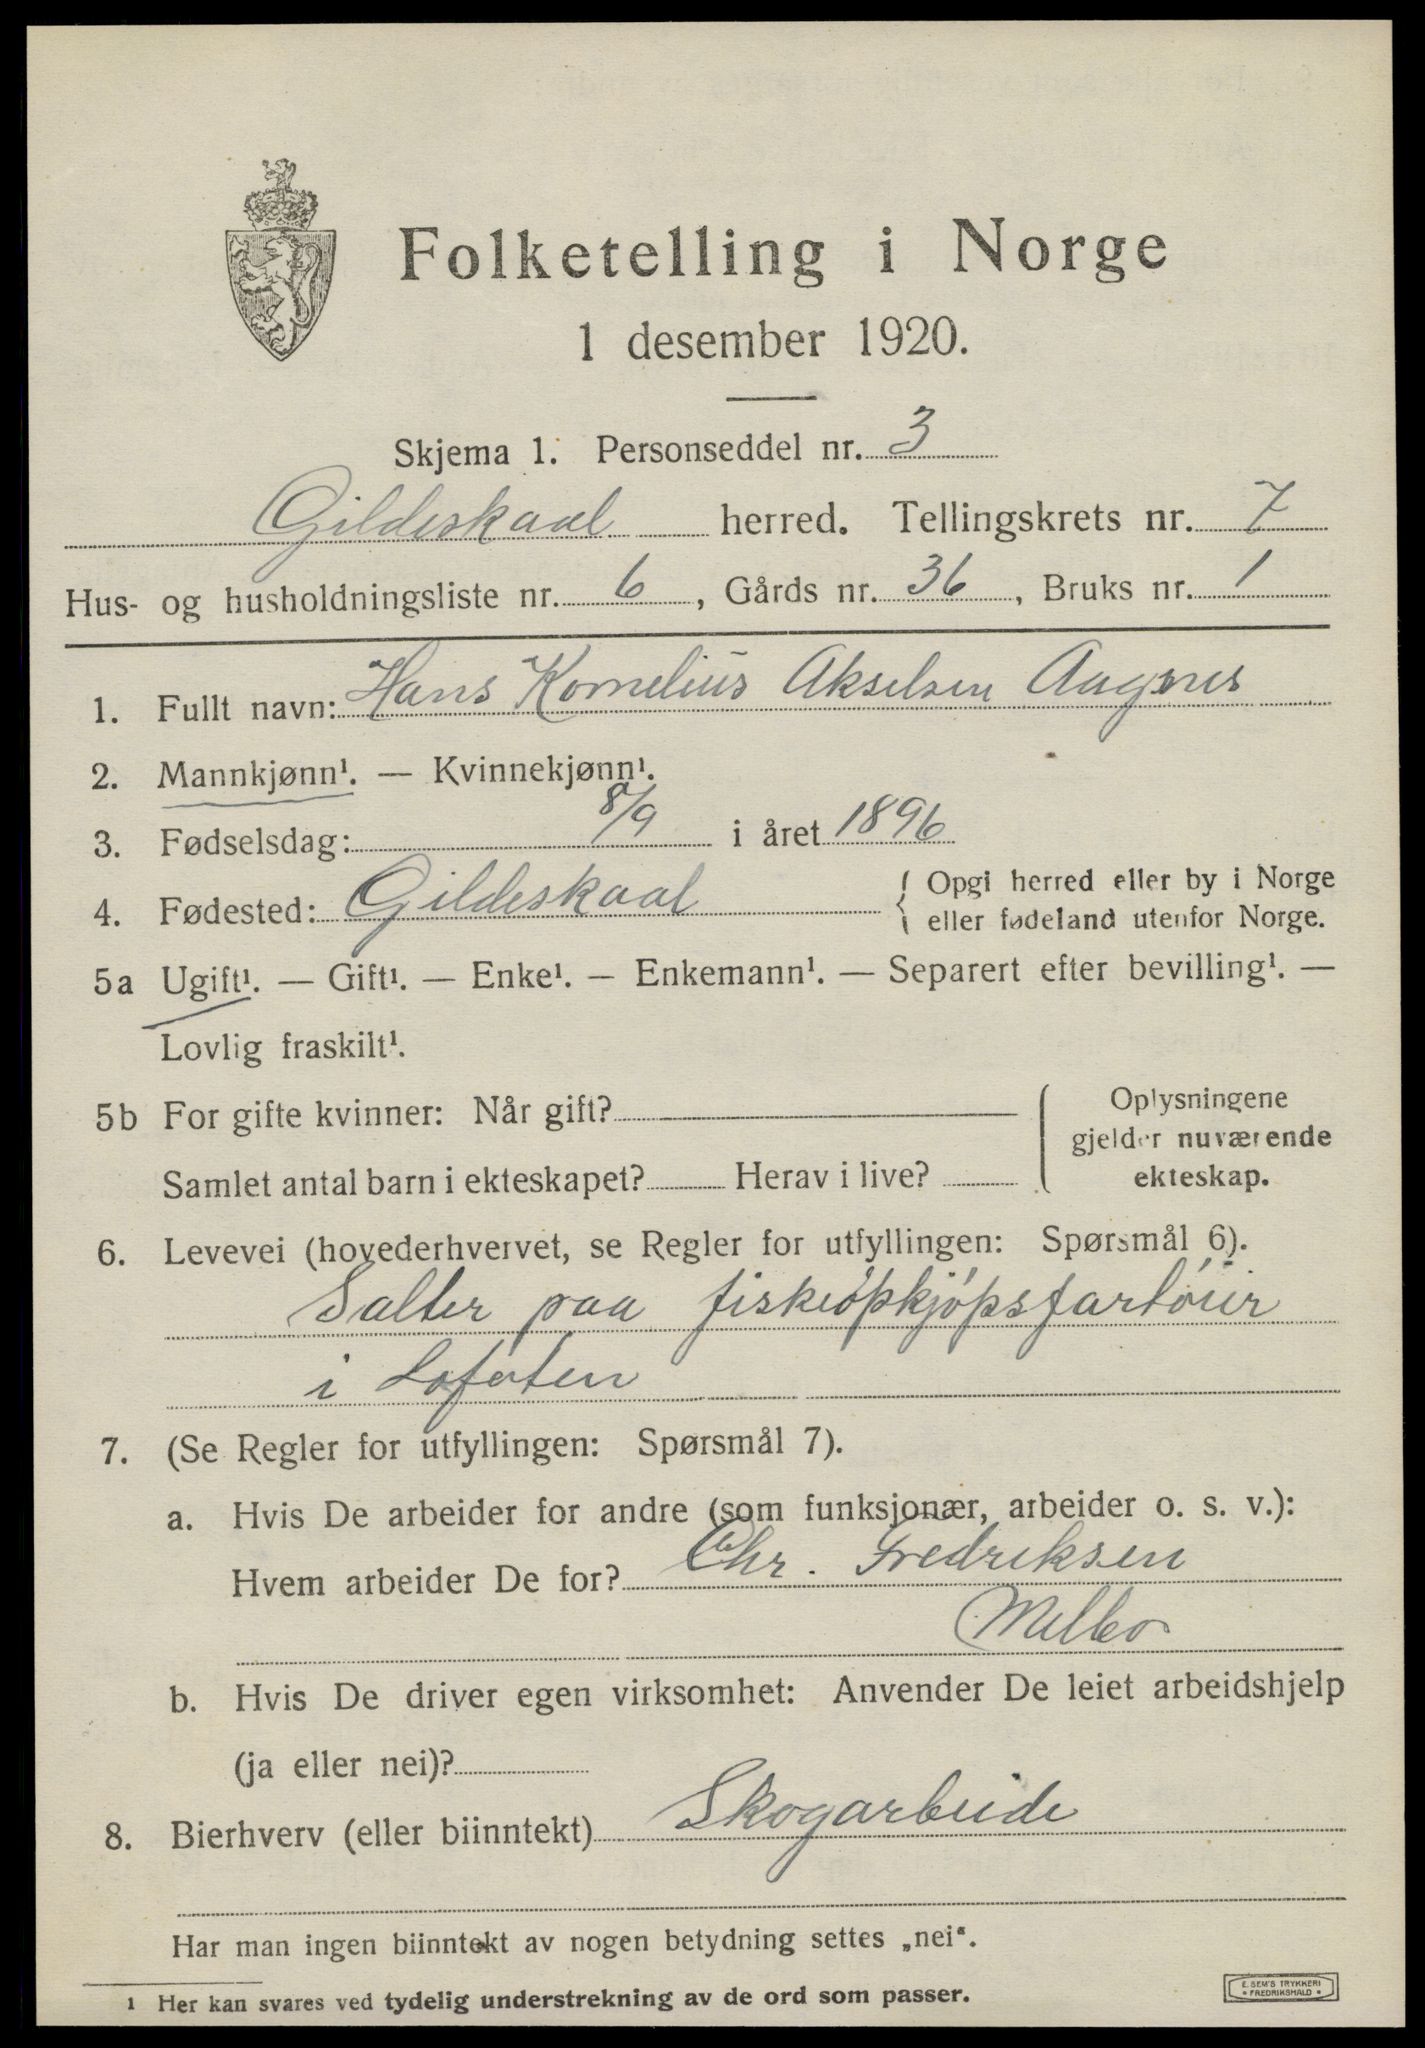 Folketelling i Norge
1 desember 1920.
Skjema 1. Personseddel nr. 3
Gildeskaal herred. Tellingskrets nr. 7
Hus- og husholdningsliste nr. 6, Gårds nr. 36, Bruks nr. 1
1. Fullt navn: Hans Kornelius Akselsen Aagsnes
2. Mannkjønn¹. — Kvinnekjønn¹.
3. Fødselsdag: 8/9 i året 1896
4. Fødested: Gildeskaal { Opgi herred eller by i Norge
eller fødeland utenfor Norge.
5a Ugift¹. — Gift¹. — Enke¹. — Enkemann¹. — Separert efter bevilling¹. —
Lovlig fraskilt¹.
5b For gifte kvinner: Når gift? { Oplysningene
gjelder nuværende
Samlet antal barn i ekteskapet? Herav i live? ekteskap.
6. Levevei (hovederhvervet, se Regler for utfyllingen: Spørsmål 6).
Salter paa fiskeópkjópsfartóier
i Lofoten
7. (Se Regler for utfyllingen: Spørsmål 7).
a. Hvis De arbeider for andre (som funksjonær, arbeider o. s. v.):
Hvem arbeider De for? Chr. Fredriksen
Melbo
b. Hvis De driver egen virksomhet: Anvender De leiet arbeidshjelp
(ja eller nei)?
8. Bierhverv (eller biinntekt) Skogarbeide
Har man ingen biinntekt av nogen betydning settes „nei“.
1 Her kan svares ved tydelig understrekning av de ord som passer.
E. SEM'S TRYKKERI
• FREDRIKSHALD •